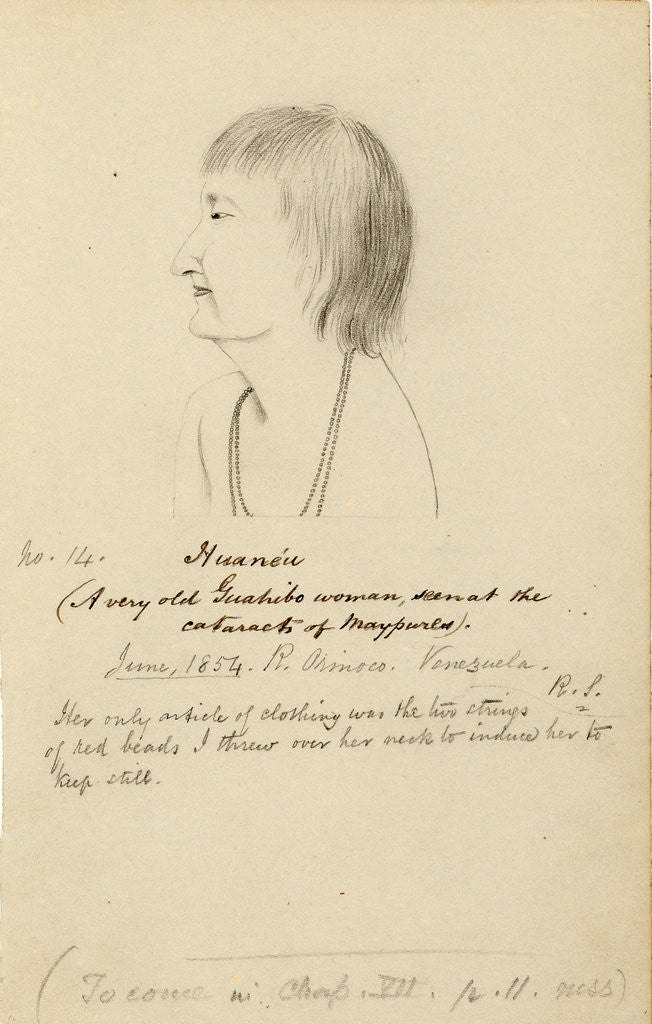 No. 14. Huanéu
(A very old Guahibo woman, seen at the
cataracts of Maypures).
June, 1854. R. Orinoco. Venezuela.
R. S.
Her only article of clothing was the two strings
of red beads I threw over her neck to induce her to
keep still.
(To come in Chap. VII. p. 11. mss)